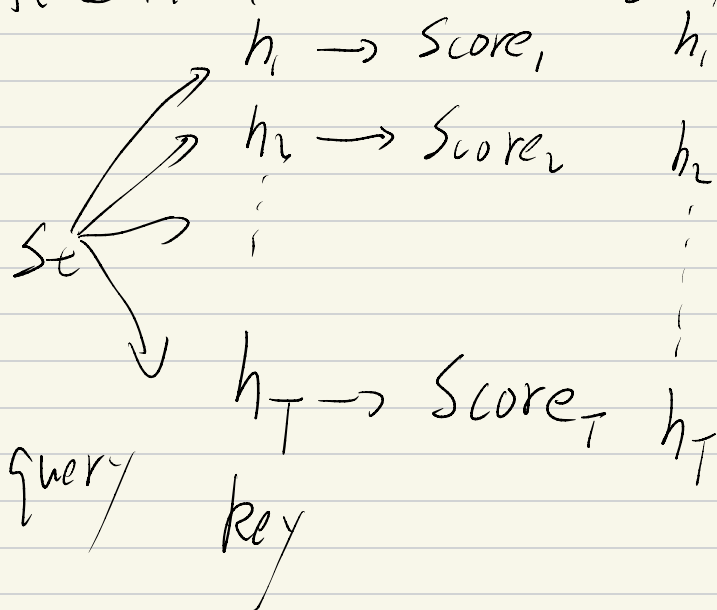 h₁ → Score₁ h₁
h₂ → Score₂ h₂
St
h_T → Score_T h_T
query
key